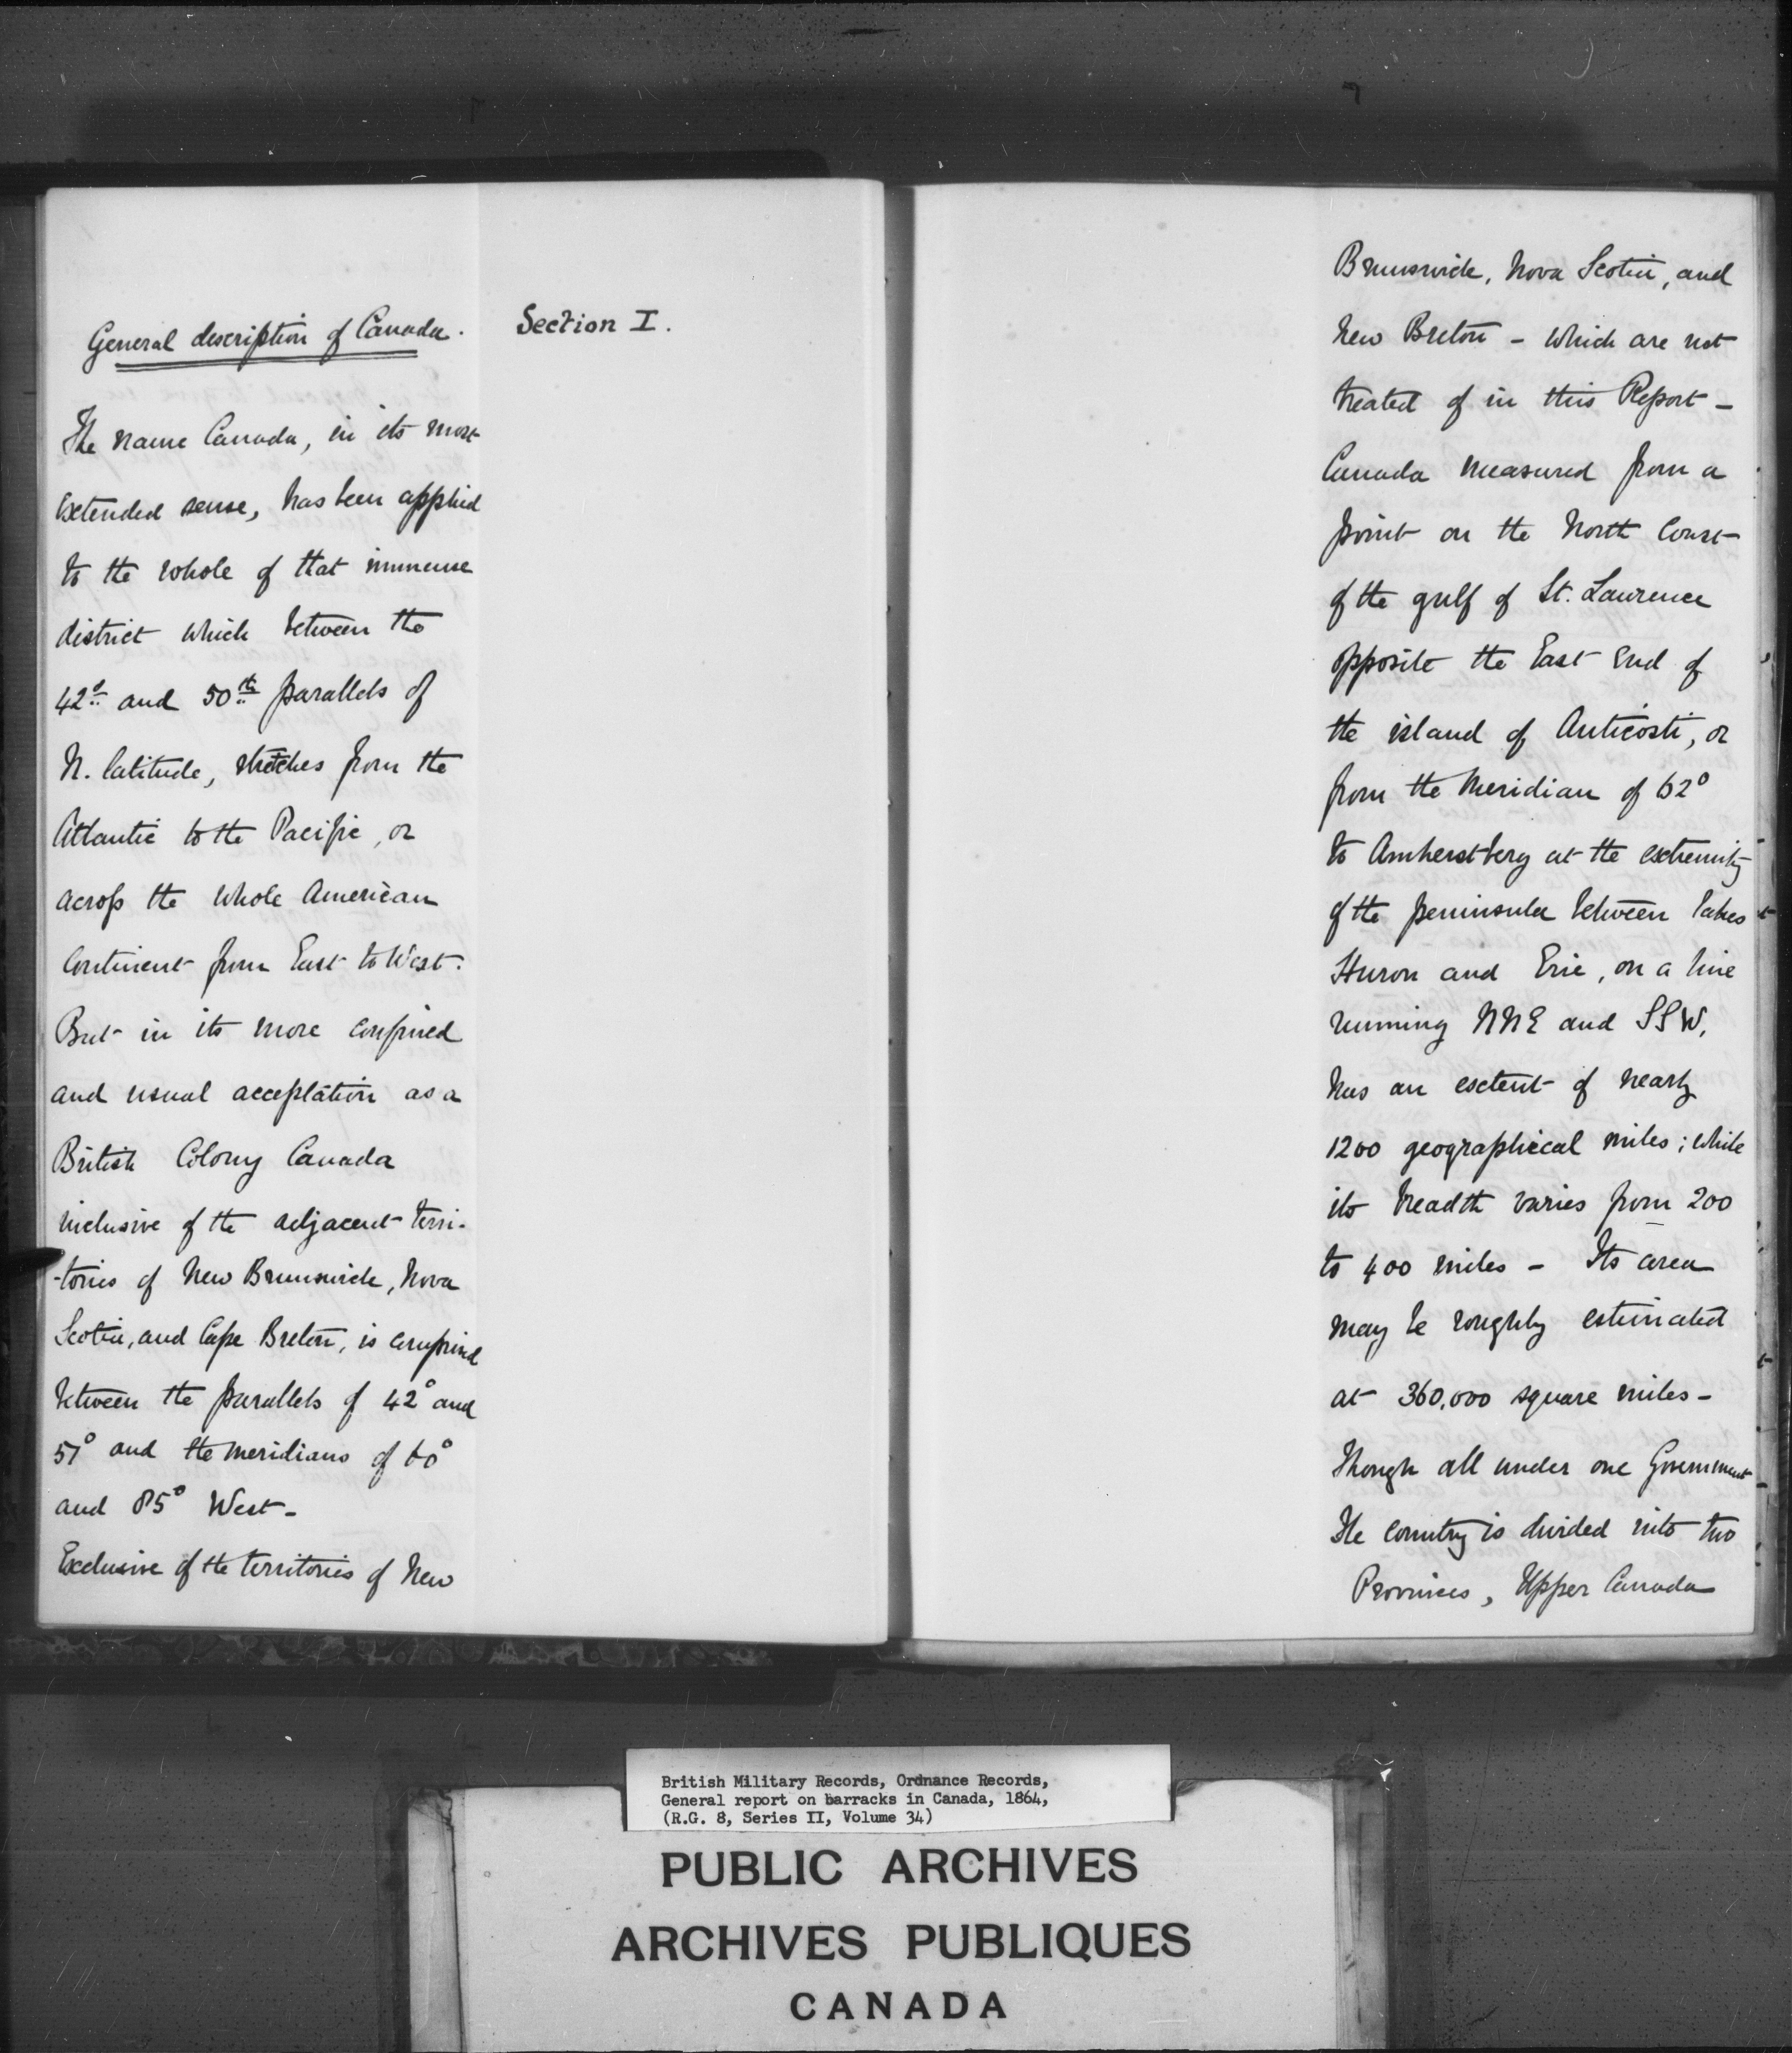 General description of Canada.
Section I.
The name Canada, in its most
extended sense, has been applied
to the whole of that immense
district which between the
42d and 50th parallels of
N. latitude, stretches from the
Atlantic to the Pacific, or
across the whole American
Continent from East to West.
But in its more confined
and usual acceptation as a
British Colony Canada
inclusive of the adjacent terri-
-tories of New Brunswick, Nova
Scotia, and Cape Breton, is comprised
between the parallels of 42° and
51° and the meridians of 60°
and 85° West-
Exclusive of the territories of New
Brunswick, Nova Scotia, and
New Breton - which are not
treated of in this Report -
Canada measured from a
point on the North Coast
of the gulf of St. Lawrence
opposite the East End of
the island of Anticosti, or
from the Meridian of 62°
to Amherstberg at the extremity
of the peninsula between lakes
Huron and Erie, on a line
running NNE and SSW,
has an extent of nearly
1200 geographical miles; while
its breadth varies from 200
to 400 miles - Its area
may be roughly estimated
at 360,000 square miles -
Though all under one Government
the country is divided into two
Provinces, Upper Canada
British Military Records, Ordnance Records,
General report on barracks in Canada, 1864,
(R.G. 8, Series II, Volume 34)
PUBLIC ARCHIVES
ARCHIVES PUBLIQUES
CANADA